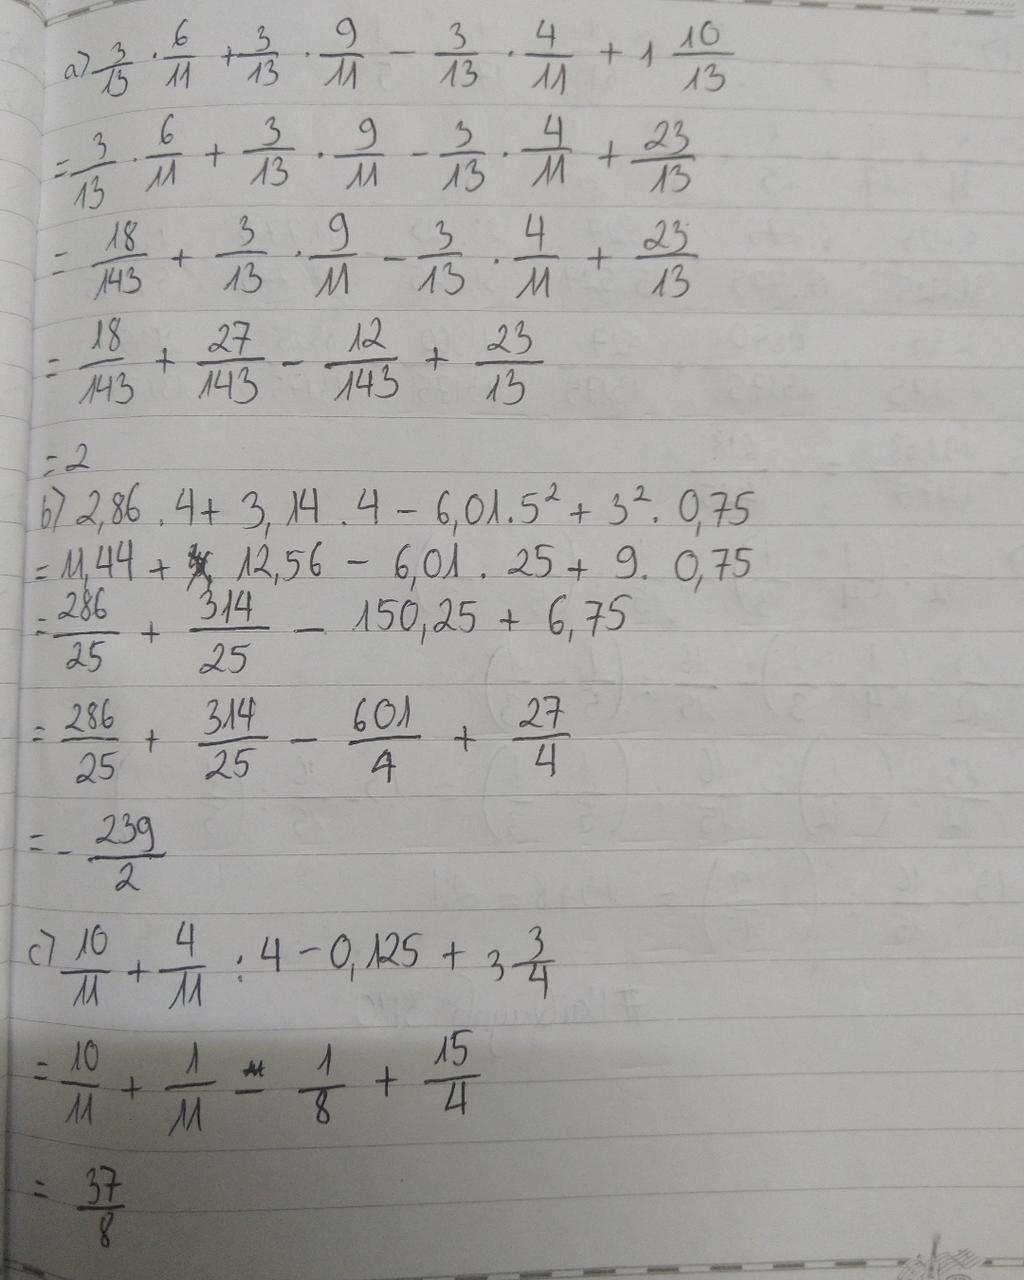 a) 3/13 . 6/11 + 3/13 . 9/11 - 3/13 . 4/11 + 1 10/13
= 3/13 . 6/11 + 3/13 . 9/11 - 3/13 . 4/11 + 23/13
= 18/143 + 3/13 . 9/11 - 3/13 . 4/11 + 23/13
= 18/143 + 27/143 - 12/143 + 23/13
= 2
b) 2,86 . 4 + 3,14 . 4 - 6,01 . 5² + 3² . 0,75
= 11,44 + 12,56 - 6,01 . 25 + 9 . 0,75
= 286/25 + 314/25 - 150,25 + 6,75
= 286/25 + 314/25 - 601/4 + 27/4
= - 239/2
c) 10/11 + 4/11 : 4 - 0,125 + 3 3/4
= 10/11 + 1/11 - 1/8 + 15/4
= 37/8